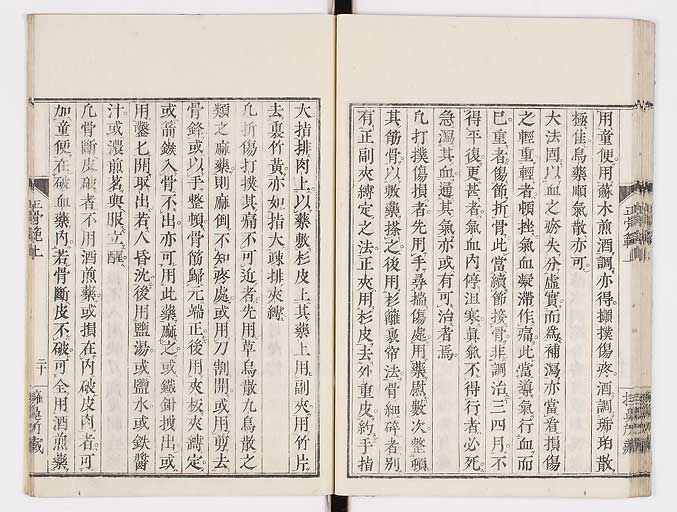 用童便、用蘇木煎酒調、亦得、攧撲傷疼、酒調琥珀散、
極佳、烏藥順氣散、亦可、
大法固以血之瘀失、分虛實、而爲補瀉、亦當看損傷
之輕重、輕者頓挫、氣血凝滯作痛、此當導氣行血而
已、重者、傷筋折骨、此當續筋接骨、非調治三四月、不
得平復、更甚者、氣血內停沮塞、真氣不得行者必死、
急瀉其血、通其氣、亦或有可治者焉、
凡打撲傷損者、先用手尋揣傷處、用藥熨數次、整頓
其筋骨、以敷藥搽之後、用杉籬裹帘法、骨細碎者、別
有正副夾縛定之法、正夾用杉皮、去外重皮、約手指
大、指排肉上、以藥敷杉皮上、其藥上用副夾、用竹片
去裏竹黃、亦如指大疎排夾縛、
凡折傷打撲、其痛不可近者、先用草烏散九烏散之
類之麻藥、則麻倒不知疼處、或用刀割開、或用剪去
骨鋒、或以手整頓骨筋歸元端正後、用夾板夾縛定、
或箭鏃入骨不出、亦可用此藥麻之、或鐵鉗拽出、或
用鑿七開取出、若人昏沈後、用鹽湯、或鹽水、或鉄醬
汁、或濃煎茗與服、立醒、
凡骨斷皮破者、不用酒煎藥、或損在內破皮肉者、可
加童便、在破血藥內、若骨斷皮不破、可全用酒煎藥、
正骨範上
二十